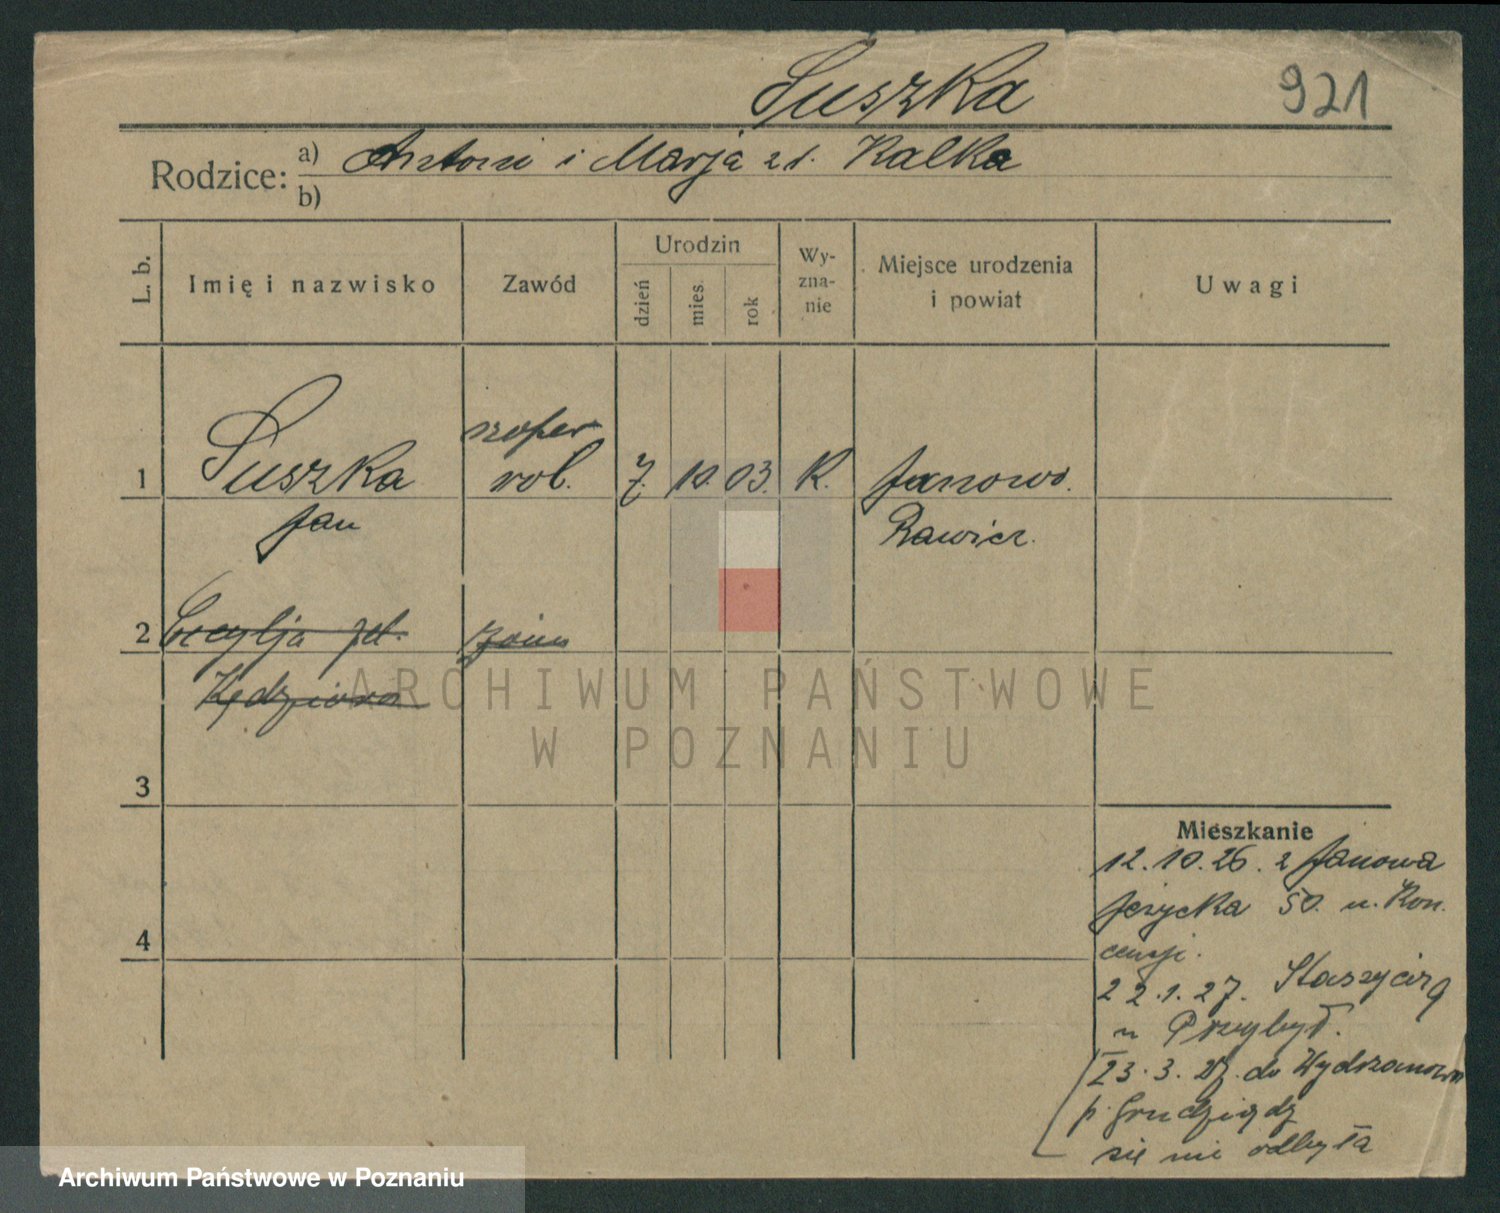 Suszka
921
Rodzice: a) Antoni i Marja z d. Kalka
b)
L. b.
Imię i nazwisko
Zawód
Urodzin
dzień
mies.
rok
Wy-
zna-
nie
Miejsce urodzenia
i powiat
Uwagi
szofer
1 Suszka rob. 7. 10. 03. K. Janowo.
Jan Rawicz.
2 Cecylja
Kędziora
3
4
Mieszkanie
12.10.26. z Janowa
Jeżycka 50. u.
22.1.27. 9
u Przybył.
23.3. 27. do
p. Grudziądz
się nie odbyła
ARCHIWUM PAŃSTWOWE
W POZNANIU
Archiwum Państwowe w Poznaniu